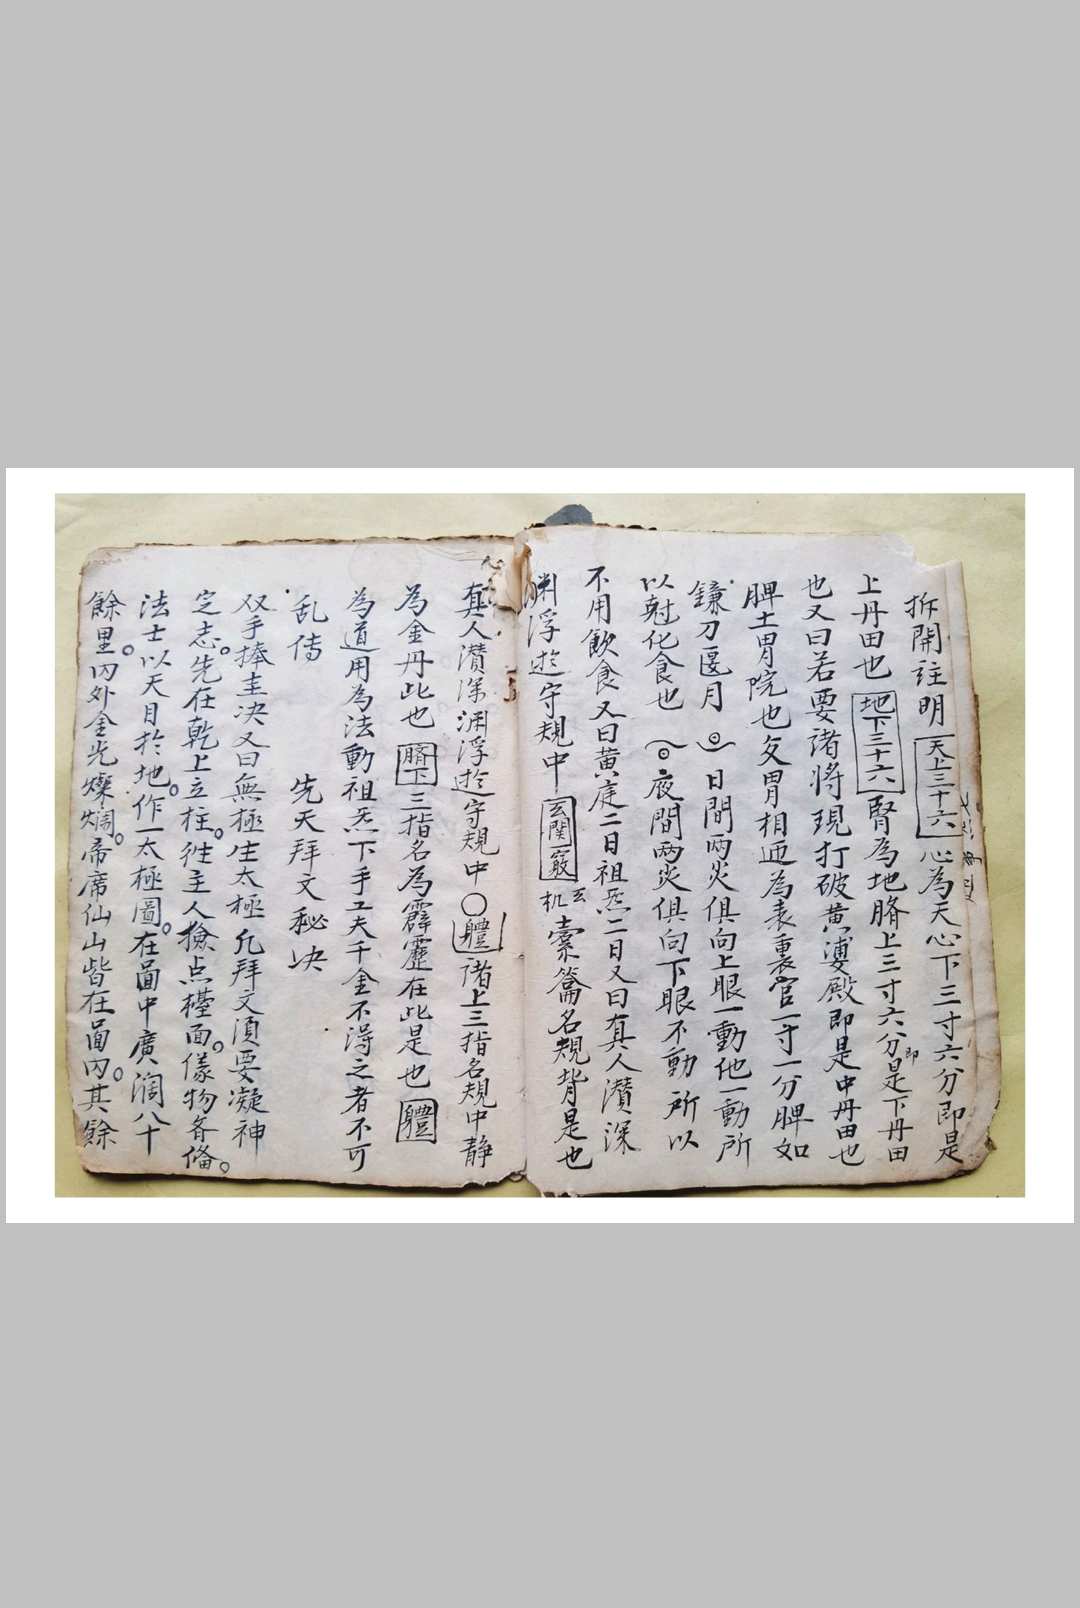 拆開註明天上三十六心為天心下三寸六分即是
上丹田也地下三十六腎為地臍上三寸六分即是下丹田
也又曰若要諸將現打破黃婆殿即是中丹田也
脾土胃院也交胃相連為表裏官一寸一分脾如
鐮刀偃月日間兩炎俱向上眼一動他一動所
以尅化食也夜間兩炎俱向下眼不動所以
不用飲食又曰黃庭二曰祖炁二曰又曰真人潛深
渊浮遊守規中玄関一竅玄机橐籥名規背是也
真人潛深渊浮遊守規中〇體諸上三指名規中静
為金丹此也臍下三指名為霹靂在此是也體
為道用為法動祖炁下手工夫千金不淂之者不可
乱传 先天拜文秘决
双手捧圭决又曰無極生太極凡拜文湏要凝神
定志。先在乾上立柱。徃主人撿点檯面。儀物各俻。
法士以天目扵地。作一太極圖。在啚中廣濶八十
餘里。内外金光燦爛。帝席仙山皆在啚内。其餘